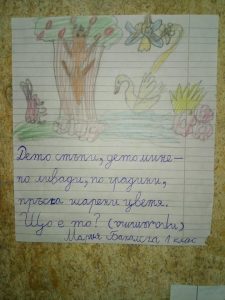 Дето стъпи, дето мине –
по ливади, по градини,
пръска шарени цветя.
Що е то?
Мария 1 клас